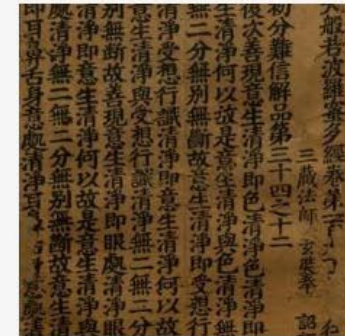 般若波羅蜜多經卷第一百
三藏法師 玄奘奉 詔
初分難信解品第三十四之十二
復次善現意生清淨即色清淨色清淨即
生清淨何以故是意生清淨與色清淨無
無二分無別無斷故意生清淨即受想行
清淨受想行識清淨即意生清淨何以故
意生清淨與受想行識清淨無二無二分
別無斷故善現意生清淨即眼處清淨眼
清淨即意生清淨何以故是意生清淨與
處清淨無二無二分無別無斷故意生清
即耳鼻舌身意處清淨耳